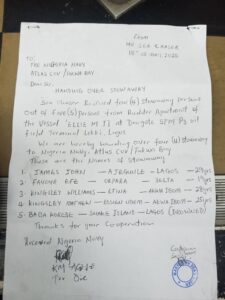 From
MV SEA CHASER
1ST 05 May, 2025
TO
THE NIGERIA NAVY
ATLAS COV / TAKWA BAY
Dear Sir,
HANDING OVER STOWAWAY
Sea Chaser Rescued four (4) stowaway persons
Out of five (5) persons from Rudder Apartment of
the Vessel at Dangote SPM P3 oil
field Terminal Lekki, Lagos
We are hereby handing over four (4) stowaway
to Nigeria Navy. Atlas Cov/Takwa Bay
These are the Names of stowaway
1. JAMES JOHN - AJEGUNLE - LAGOS - yrs
2. FAVOUR EFE - OKPARA - DELTA - 19yrs
3. KINGSLEY WILLIAMS - - AKWA IBOM - yrs
4. KINGSLEY MATHEW - UDEM - AKWA IBOM - 25yrs
5. BADA - SNAKE ISLAND - LAGOS (DROWNED)
Thanks for your Cooperation
Received Nigeria Navy
Captain